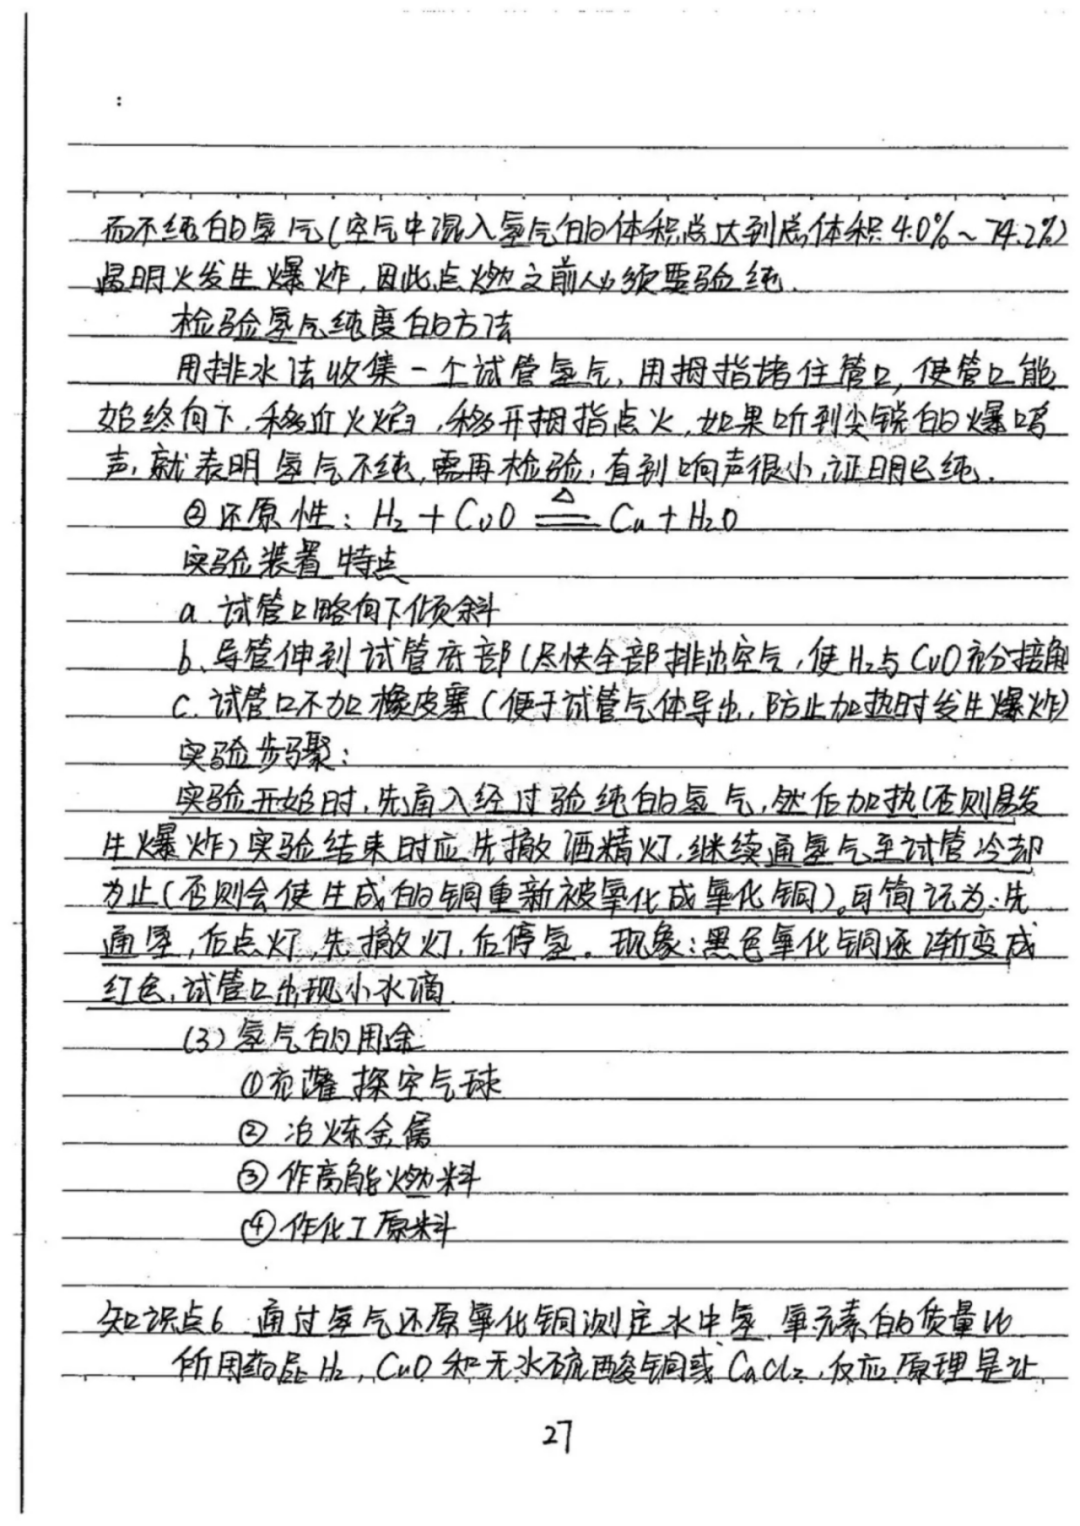 而不纯的氢气(空气中混入氢气的体积总达到总体积4.0%~74.2%)
遇明火发生爆炸,因此点燃之前必须要验纯.
检验氢气纯度的方法
用排水法收集一个试管氢气,用拇指堵住管口,使管口能
始终向下,移近火焰,移开拇指点火,如果听到尖锐的爆鸣
声,就表明氢气不纯,需再检验,直到响声很小,证明已纯.
②还原性: H₂+CuO ≜ Cu+H₂O
实验装置特点
a. 试管口略向下倾斜
b. 导管伸到试管底部(尽快全部排出空气,使H₂与CuO充分接触
c. 试管口不加橡皮塞(便于试管气体导出,防止加热时发生爆炸)
实验步骤:
实验开始时,先通入经过验纯的氢气,然后加热(否则易发
生爆炸)实验结束时应先撤酒精灯,继续通氢气至试管冷却
为止(否则会使生成的铜重新被氧化成氧化铜)。可简记为:先
通氢,后点灯,先撤灯,后停氢。现象:黑色氧化铜逐渐变成
红色,试管口出现小水滴.
(3)氢气的用途
①充灌探空气球
②冶炼金属
③作高能燃料
④作化工原料
知识点6 通过氢气还原氧化铜测定水中氢、氧元素的质量比
所用药品H₂,CuO和无水硫酸铜或CaCl₂,反应原理是让
27